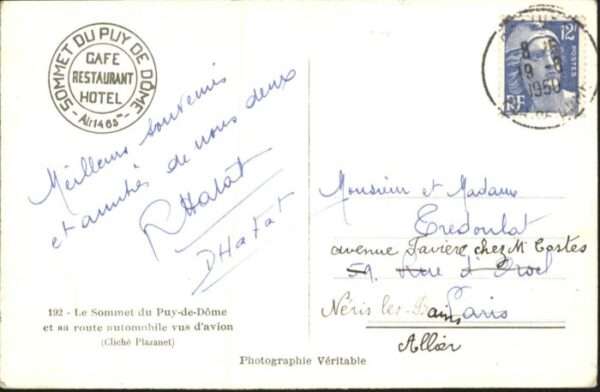 SOMMET DU PUY DE DÔME
CAFE
RESTAURANT
HOTEL
Alt 1465m
Meilleurs souvenirs
et amitiés de nous deux
RHatat
DHatat
192 - Le Sommet du Puy-de-Dôme
et sa route automobile vus d'avion
(Cliché Plazanet)
12F
POSTES
RF
19 -8
1950
Monsieur et Madame
Tredoulat
avenue Favière chez M Costes
59 Rue d'
Néris les-Bains Paris
Allier
Photographie Véritable